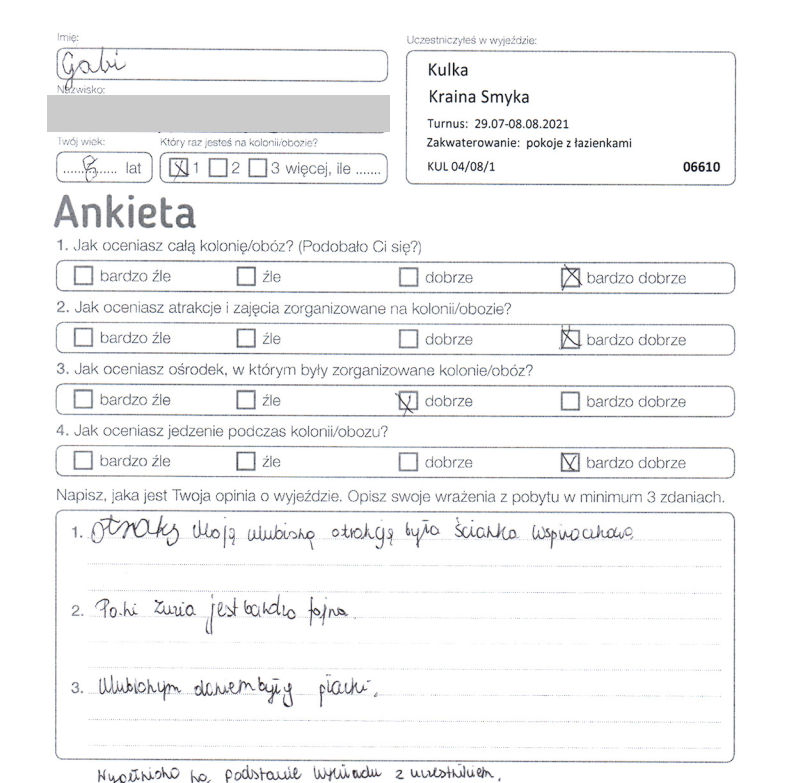 Imię:
Gabi
Nazwisko:
Uczestniczyłeś w wyjeździe:
Kulka
Kraina Smyka
Turnus: 29.07-08.08.2021
Zakwaterowanie: pokoje z łazienkami
KUL 04/08/1 06610
Twój wiek: Który raz jesteś na kolonii/obozie?
......8...... lat 1 2 3 więcej, ile .......
Ankieta
1. Jak oceniasz całą kolonię/obóz? (Podobało Ci się?)
bardzo źle źle dobrze bardzo dobrze
2. Jak oceniasz atrakcje i zajęcia zorganizowane na kolonii/obozie?
bardzo źle źle dobrze bardzo dobrze
3. Jak oceniasz ośrodek, w którym były zorganizowane kolonie/obóz?
bardzo źle źle dobrze bardzo dobrze
4. Jak oceniasz jedzenie podczas kolonii/obozu?
bardzo źle źle dobrze bardzo dobrze
Napisz, jaka jest Twoja opinia o wyjeździe. Opisz swoje wrażenia z pobytu w minimum 3 zdaniach.
1. Moją ulubioną atrakcją była ścianka wspinaczkowa
2. Pani Zuzia jest bardzo fajna.
3. Ulubionym daniem były placki.
podstawie wywiadu z uczestnikiem.